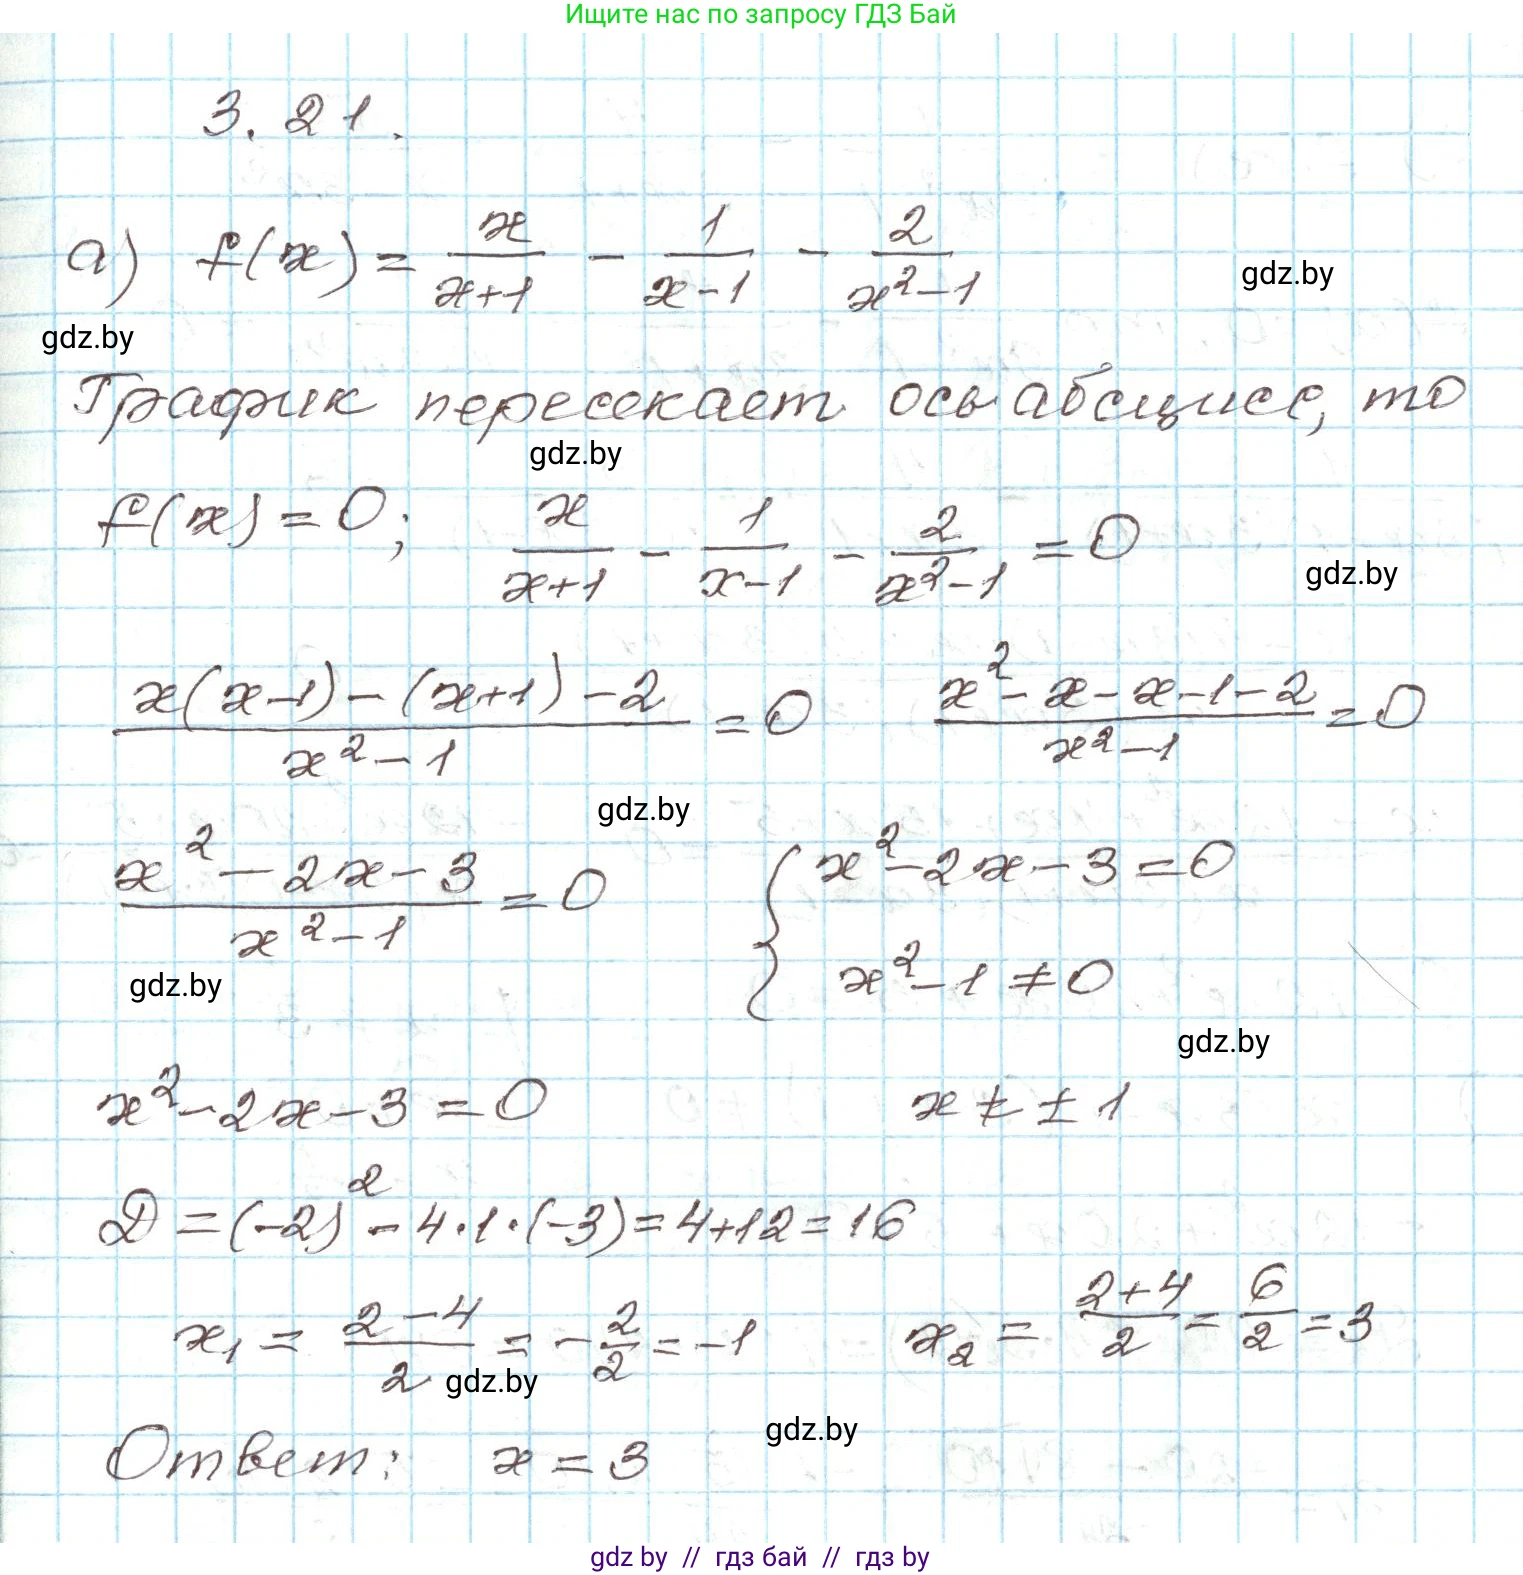 Ищите нас по запросу ГДЗ Бай
3.21.
а) f(x) = x/(x+1) - 1/(x-1) - 2/(x²-1)
gdz.by
gdz.by
График пересекает ось абсцисс, то
gdz.by
f(x) = 0; x/(x+1) - 1/(x-1) - 2/(x²-1) = 0
gdz.by
(x(x-1) - (x+1) - 2)/(x²-1) = 0 (x² - x - x - 1 - 2)/(x²-1) = 0
gdz.by
(x² - 2x - 3)/(x²-1) = 0 { x² - 2x - 3 = 0
x² - 1 ≠ 0
gdz.by
gdz.by
x² - 2x - 3 = 0 x ≠ ±1
D = (-2)² - 4·1·(-3) = 4+12 = 16
x₁ = (2-4)/2 = -2/2 = -1 x₂ = (2+4)/2 = 6/2 = 3
gdz.by
gdz.by
Ответ: x = 3
gdz by // гдз бай // гдз by